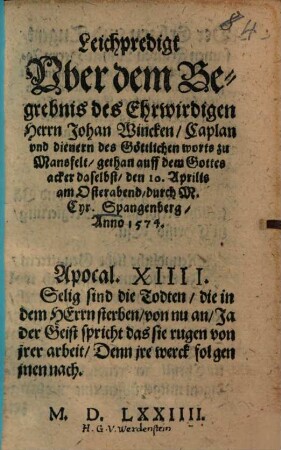 84.
Leichpredigt
Vber dem Be-
grebnis des Ehrwirdigen
Herrn Johan Wincken / Caplan
vnd dienern des Göttlichen worts zu
Mansfelt / gethan auff dem Gottes
acker daselbst / den 10. Aprilis
am Osterabend / durch M.
Cyr. Spangenberg /
Anno 1574.
Apocal. XIIII.
Selig sind die Todten / die in
dem HErrn sterben / von nu an / Ja
der Geist spricht das sie rugen von
jrer arbeit / Denn jre werck folgen
jnen nach.
M. D. LXXIIII.
H. G. V. Werdenstein